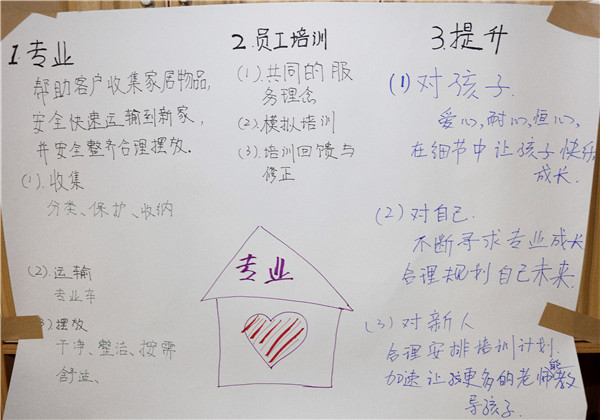 1.专业
帮助客户收集家居物品,
安全快速运输到新家,
并安全整齐合理摆放.
(1).收集
分类、保护、收纳
(2).运输
专业车
(3)摆放
干净、整洁、按需
舒适、
2.员工培训
(1).共同的服
务理念
(2).模拟培训
(3).培训回馈与
修正
专业
3.提升
(1)对孩子.
爱心,耐心,恒心,
在细节中让孩子快乐
成长.
(2)对自己.
不断寻求专业成长
合理规划自己未来.
(3)对新人
合理安排培训计划.
加速让更多的老师能教
导孩子.